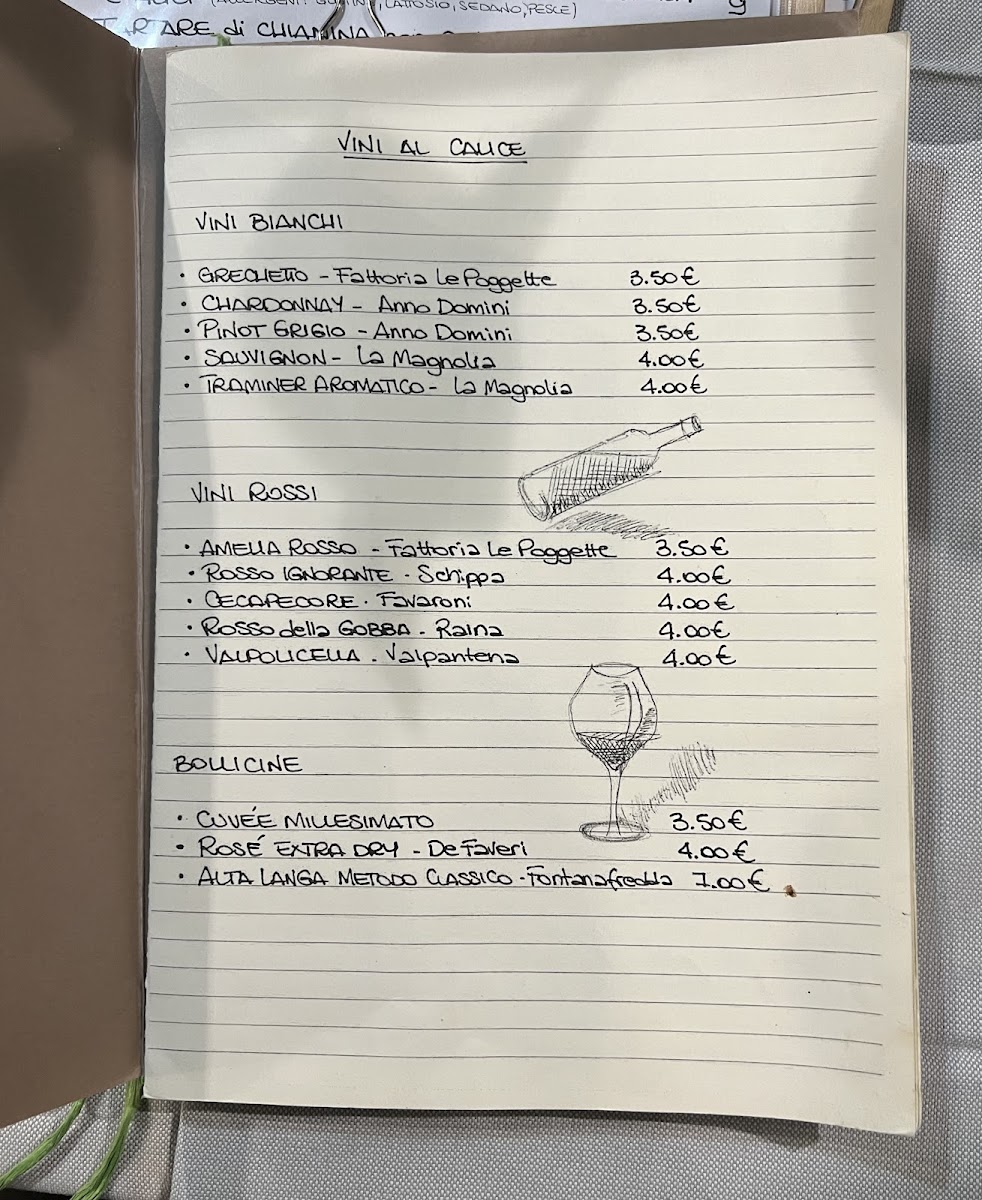 (ALLERGENI: GLUTINE, LATTOSIO, SEDANO, PESCE)
TARTARE di CHIANINA
VINI AL CALICE
VINI BIANCHI
• GRECHETTO - Fattoria Le Poggette 3.50€
• CHARDONNAY - Anno Domini 3.50€
• PINOT GRIGIO - Anno Domini 3.50€
• SAUVIGNON - La Magnolia 4.00€
• TRAMINER AROMATICO - La Magnolia 4.00€
VINI ROSSI
• AMELIA ROSSO - Fattoria Le Poggette 3.50€
• ROSSO IGNORANTE - Schippa 4.00€
• CECAPECORE - Favaroni 4.00€
• ROSSO della GOBBA - Raina 4.00€
• VALPOLICELLA - Valpantena 4.00€
BOLLICINE
• CUVÉE MILLESIMATO 3.50€
• ROSÉ EXTRA DRY - De Faveri 4.00€
• ALTA LANGA METODO CLASSICO - Fontanafredda 7.00€